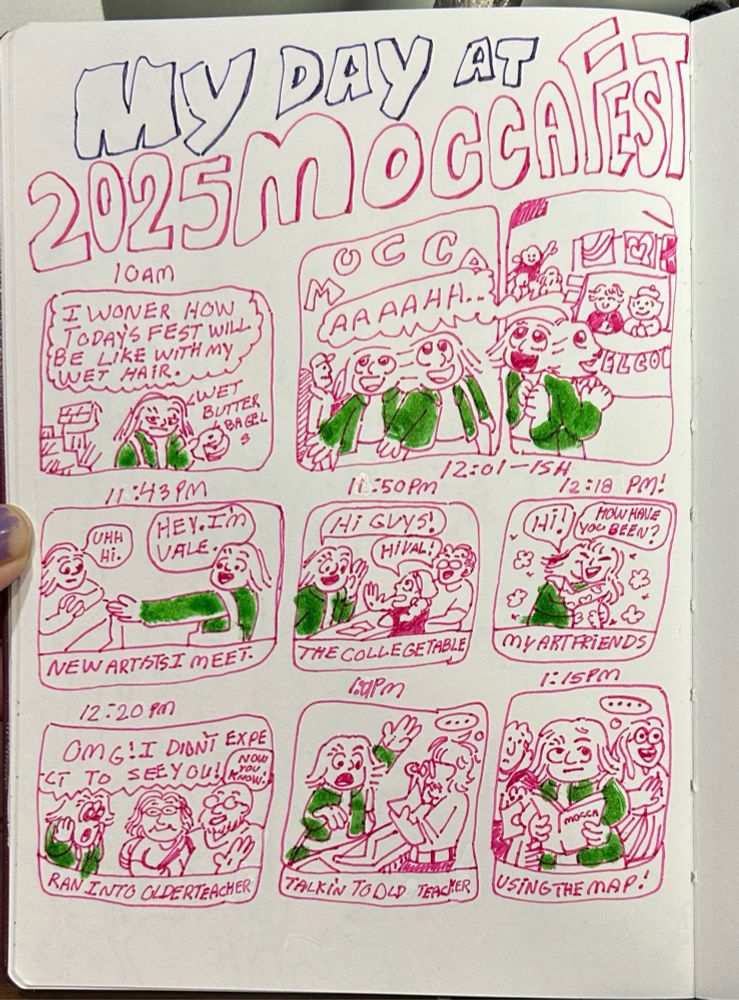 MY DAY AT
2025 MOCCAFEST
10AM
I WONER HOW
TODAY'S FEST WILL
BE LIKE WITH MY
WET HAIR.
WET
BUTTER
BAGEL
S
MOCCA
AAAAHH..
ELCO
12:01-ISH
11:43PM
UHH
HI.
HEY. I'M
VALE.
NEW ARTSTS I MEET.
11:50PM
HI GUYS!
HI VAL!
THE COLLEGE TABLE
12:18 PM!
HI!
HOW HAVE
YOU BEEN?
MY ART FRIENDS
12:20 PM
OMG! I DIDN'T EXPE
CT TO SEE YOU!
NOW
YOU
KNOW.
RAN INTO OLDER TEACHER
PM
...
TALKIN TO OLD TEACHER
1:15PM
...
MOCCA
USING THE MAP!